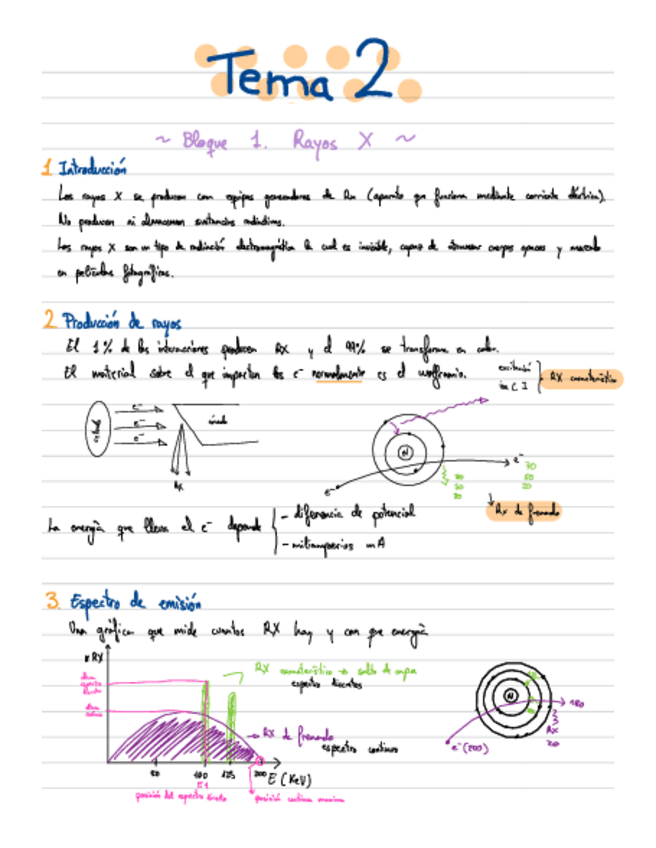 Tema 2
~ Bloque 1. Rayos X ~
1 Introducción
Los rayos X se producen con equipos generadores de Rx (aparato que funciona mediante corriente eléctrica).
No producen ni almacenan sustancias radiactivas.
Los rayos X son un tipo de radiación electromagnética la cual es invisible, capaz de atravesar cuerpos opacos y
en películas fotográficas.
2 Producción de rayos
El 1% de las interacciones producen RX y el 99% se transforma en calor.
El material sobre el que impactan los e- normalmente es el wolframio.
RX característico
cátodo
e-
e-
e-
ánodo
Rx
N
e-
e-
70
50
20
Rx de frenado
La energía que lleva el e- depende
- diferencia de potencial
- miliamperios mA
3. Espectro de emisión
Una gráfica que mide cuantos RX hay y con que energía
RX
RX característico → salto de capa
espectro discreto
RX de frenado
espectro continuo
200 E (KeV)
E1
posición del espectro discreto
posición continua maxima
N
e- (200)
180
Rx
20